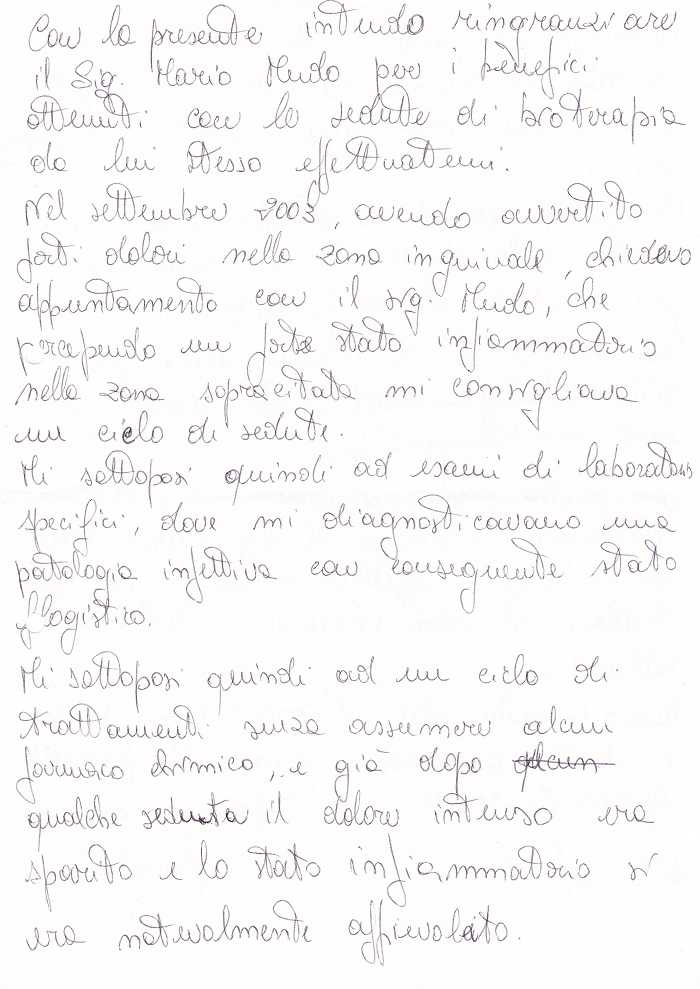 Con la presente intendo ringranziare
il Sig. Mario Mudo per i benefici
ottenuti con le sedute di bioterapia
da lui stesso effettuatemi.
Nel settembre 2003, avendo avvertito
forti dolori nella zona inguinale, chiedevo
appuntamento con il sig. Mudo, che
percependo un forte stato infiammatorio
nella zona sopracitata mi consigliava
un ciclo di sedute.
Mi sottoposi quindi ad esami di laboratorio
specifici, dove mi diagnosticavano una
patologia infettiva con conseguente stato
flogistico.
Mi sottoposi quindi ad un ciclo di
trattamenti senza assumere alcun
farmaco chimico, e già dopo alcun
qualche seduta il dolore intenso era
sparito e lo stato infiammatorio si
era naturalmente affievolito.